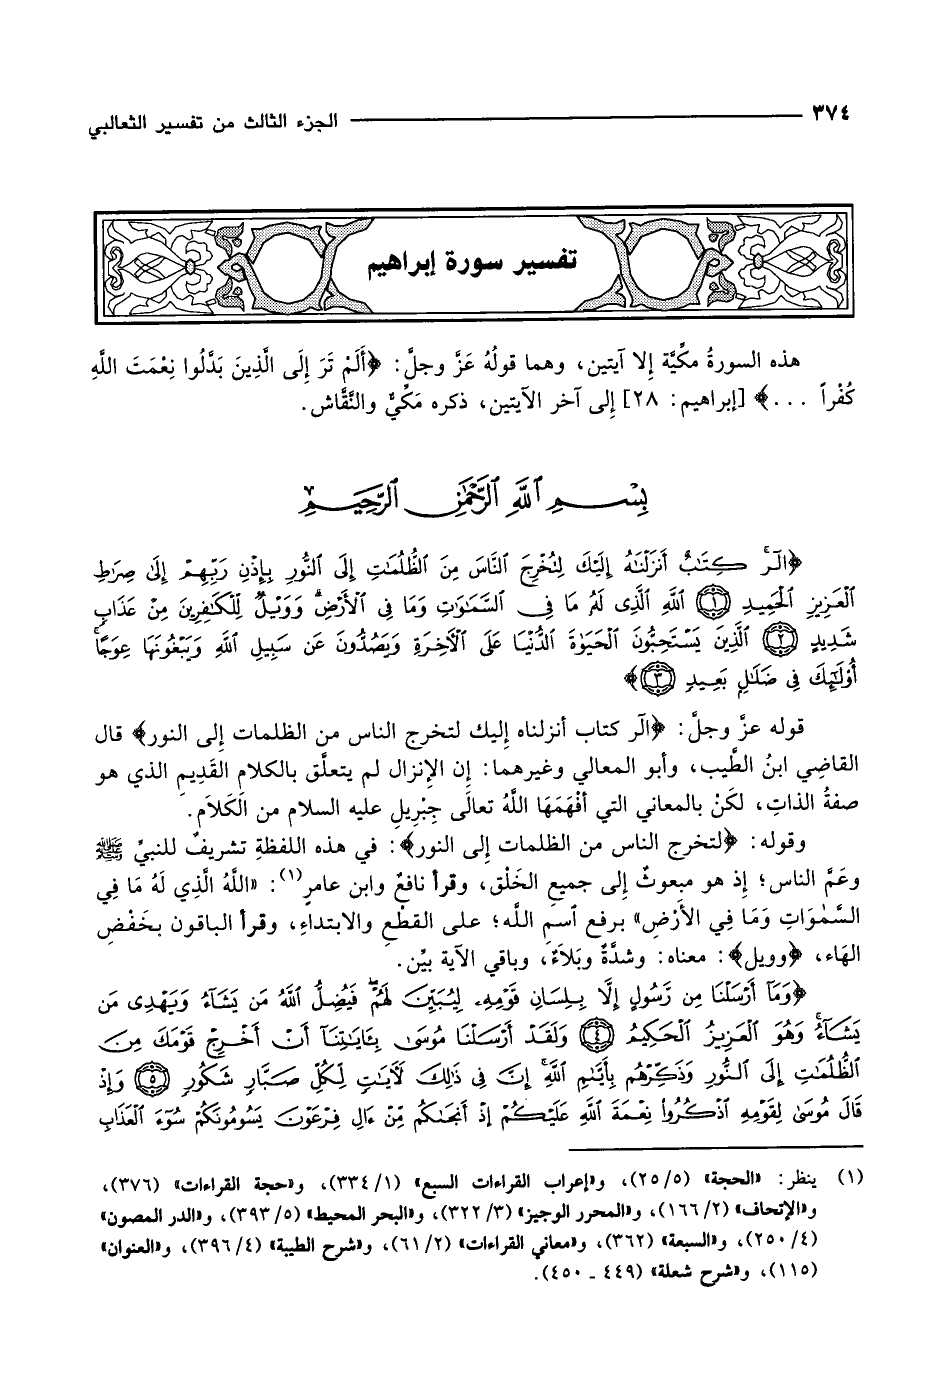 ٣٧٤ الجزء الثالث من تفسير الثعالبي
تفسير سورة إبراهيم
هذه السورةُ مكِّيَّة إلا آيتين، وهما قولُهُ عَزَّ وجلَّ: ﴿أَلَمْ تَرَ إِلَى الَّذِينَ بَدَّلُوا نِعْمَتَ اللَّهِ
كُفْراً ...﴾ [إبراهيم: ٢٨] إلى آخر الآيتين، ذكره مَكِّيٌّ والنَّقَّاش.
بِسْمِ ٱللَّهِ ٱلرَّحْمَٰنِ ٱلرَّحِيمِ
﴿الٓرۚ كِتَٰبٌ أَنزَلْنَٰهُ إِلَيْكَ لِتُخْرِجَ ٱلنَّاسَ مِنَ ٱلظُّلُمَٰتِ إِلَى ٱلنُّورِ بِإِذْنِ رَبِّهِمْ إِلَىٰ صِرَٰطِ
ٱلْعَزِيزِ ٱلْحَمِيدِ ١ ٱللَّهِ ٱلَّذِى لَهُۥ مَا فِى ٱلسَّمَٰوَٰتِ وَمَا فِى ٱلْأَرْضِۗ وَوَيْلٌ لِّلْكَٰفِرِينَ مِنْ عَذَابٍ
شَدِيدٍ ٢ ٱلَّذِينَ يَسْتَحِبُّونَ ٱلْحَيَوٰةَ ٱلدُّنْيَا عَلَى ٱلْأٓخِرَةِ وَيَصُدُّونَ عَن سَبِيلِ ٱللَّهِ وَيَبْغُونَهَا عِوَجًاۚ
أُوْلَٰٓئِكَ فِى ضَلَٰلٍۭ بَعِيدٍ ٣﴾
قوله عزَّ وجلَّ: ﴿الٓر كتاب أنزلناه إليك لتخرج الناس من الظلمات إلى النور﴾ قال
القاضِي ابنُ الطَّيب، وأبو المعالي وغيرهما: إن الإِنزال لم يتعلَّق بالكلام القَدِيمِ الذي هو
صفةُ الذاتِ، لكَنْ بالمعاني التي أفْهَمَهَا اللَّهُ تعالَى جِبْرِيلِ عليه السلام من الكَلاَم.
وقوله: ﴿لتخرج الناس من الظلمات إلى النور﴾: في هذه اللفظةِ تشريفٌ للنبيِّ ﷺ
وعَمَّ الناس؛ إذ هو مبعوثٌ إلى جميعِ الخَلْق، وقرأ نافعٌ وابن عامرٍ(١): «اللَّهُ الَّذِي لَهُ مَا فِي
السَّمٰوَاتِ وَمَا فِي الأَرْضِ» برفع اسم اللَّه؛ على القطْعِ والابتداءِ، وقرأ الباقون بخَفْضِ
الهَاء، ﴿وويل﴾: معناه: وشدَّةٌ وبَلاَءٌ، وباقي الآية بيِّن.
﴿وَمَآ أَرْسَلْنَا مِن رَّسُولٍ إِلَّا بِلِسَانِ قَوْمِهِۦ لِيُبَيِّنَ لَهُمْۖ فَيُضِلُّ ٱللَّهُ مَن يَشَآءُ وَيَهْدِى مَن
يَشَآءُۚ وَهُوَ ٱلْعَزِيزُ ٱلْحَكِيمُ ٤ وَلَقَدْ أَرْسَلْنَا مُوسَىٰ بِـَٔايَٰتِنَآ أَنْ أَخْرِجْ قَوْمَكَ مِنَ
ٱلظُّلُمَٰتِ إِلَى ٱلنُّورِ وَذَكِّرْهُم بِأَيَّىٰمِ ٱللَّهِۚ إِنَّ فِى ذَٰلِكَ لَأٓيَٰتٍ لِّكُلِّ صَبَّارٍ شَكُورٍ ٥ وَإِذْ
قَالَ مُوسَىٰ لِقَوْمِهِ ٱذْكُرُوا۟ نِعْمَةَ ٱللَّهِ عَلَيْكُمْ إِذْ أَنجَىٰكُم مِّنْ ءَالِ فِرْعَوْنَ يَسُومُونَكُمْ سُوٓءَ ٱلْعَذَابِ
(١) ينظر: «الحجة» (٢٥/٥)، و«إعراب القراءات السبع» (٣٣٤/١)، و«حجة القراءات» (٣٧٦)،
و«الإتحاف» (١٦٦/٢)، و«المحرر الوجيز» (٣٢٢/٣)، و«البحر المحيط» (٣٩٣/٥)، و«الدر المصون»
(٢٥٠/٤)، و«السبعة» (٣٦٢)، و«معاني القراءات» (٦١/٢)، و«شرح الطيبة» (٣٩٦/٤)، و«العنوان»
(١١٥)، و«شرح شعلة» (٤٤٩ ـ ٤٥٠).